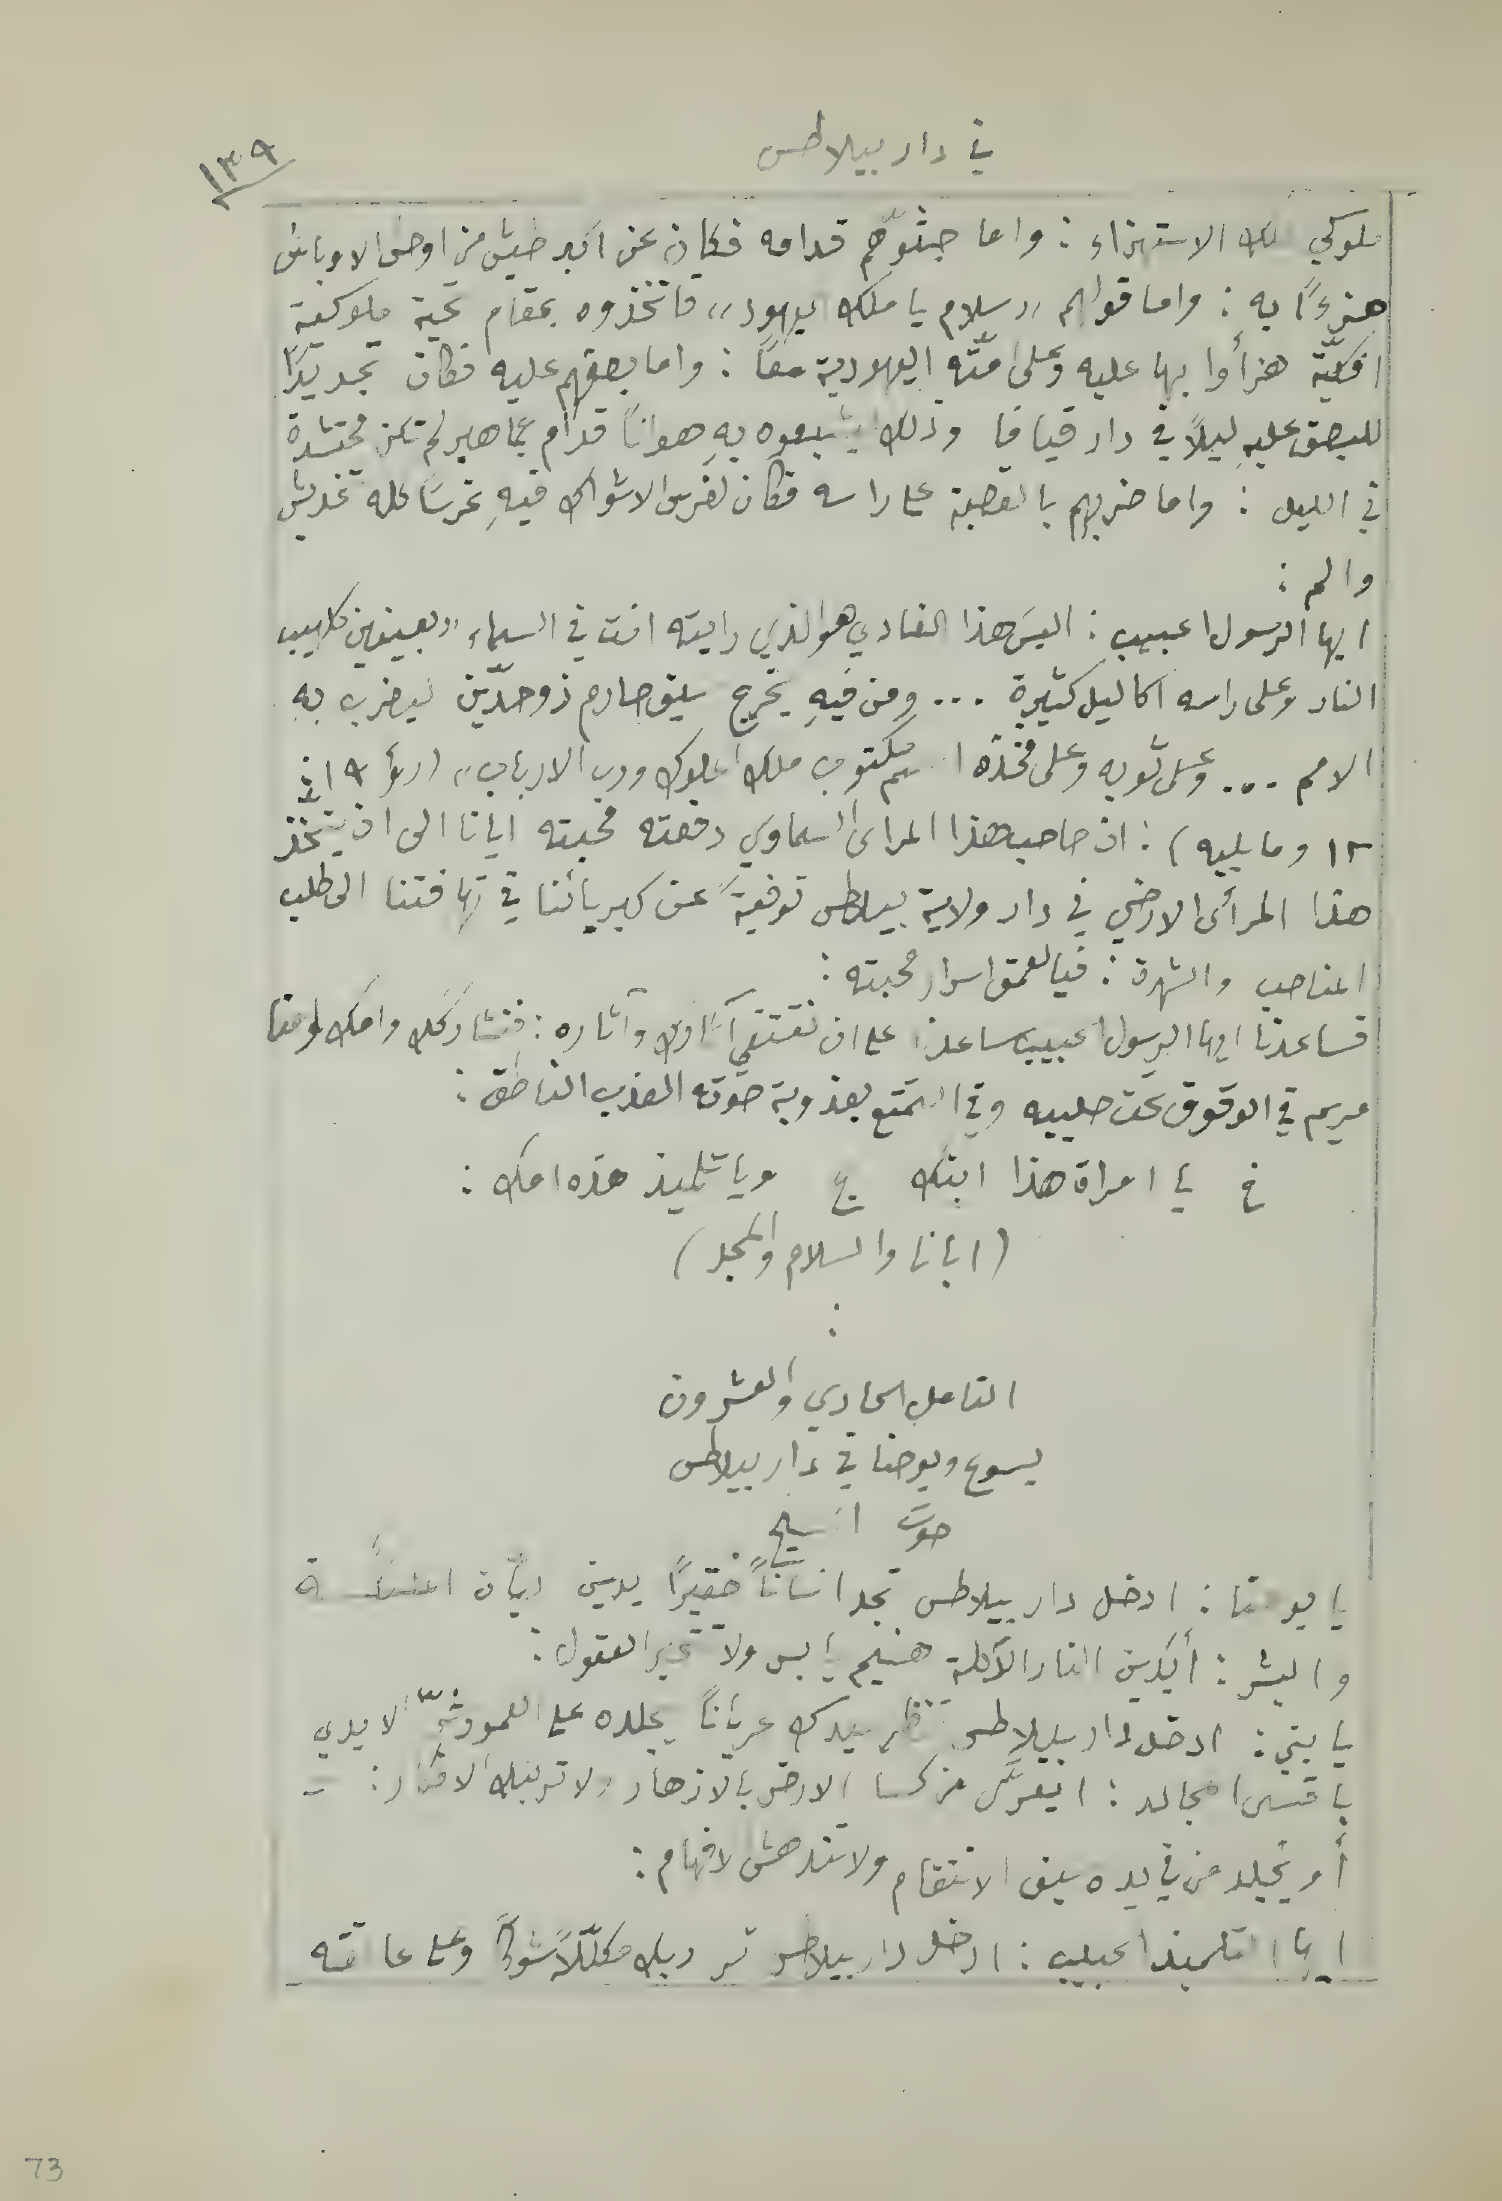 في دار بيلاطس
١٣٩
ملوكي لملك الاستهزاء : واما جثوّهم قدامه فكان عن اكبر طيش من اوحش الاوباش
هزءًا به : واما قولهم „سلام يا ملك اليهود„ فاتخذوه بمقام تحية ملوكية
افكيّة هزأوا بها عليه وعلى امّته اليهودية معًا : واما بصقهم عليه فكان تجديدًا
للبصق عليهِ ليلاً في دار قيافا وذلك ليشبعوه بهِ هوانًا قدام جماهير لم تكن محتشدة
في الليل : واما ضربهم بالقصبة على راسه فكان لغرس الاشواك فيهِ غرسًا كله تخديش
والم :
ايها الرسول الحبيب : اليس هذا الفادي هو الذي رايته انت في السماء „بعينين كلهيب
النار وعلى راسه اكاليل كثيرة ... ومن فيهِ يخرج سيف صارم ذو حدّين ليضرب بهِ
الامم ... وعلى ثوبه وعلى فخذه اسم مكتوب ملك الملوك ورب الارباب„ (رؤ ١٩ :
١٢ وما يليه) : ان صاحب هذا المرأى السماوي دفعته محبته ايانا الى ان يتخذ
هذا المرأى الارضي في دار ولاية بيلاطس توفيةً عن كبريائنا في تهافتنا الى طلب
المناصب والشهرة : فيا لعمق اسرار محبته :
فساعدنا ايها الرسول الحبيب ساعدنا على ان نقتفي آثارك وآثاره : فنشاركك وامك وامنا
مريم في الوقوف تحت صليبه وفي التمتع بعذوبة صوته العذب الناطق :
خ يا امراة هذا ابنك ع ويا تلميذ هذه امك :
(ابانا والسلام والمجد)
:
التامل الحادي والعشرون
يسوع ويوحنا في دار بيلاطس
صوت المسيح
يا يوحنا : ادخل دار بيلاطس تجد انسانًا حقيرًا يدين ديّان الملائكة
والبشر : أيدين النار الآكلة هشيم يابس ولا تحير العقول :
يا بني : ادخل دار بيلاطس تنظر سيدك عريانًا يجلده على العمود اثيمو الايدي
باقسى المجالد : ايعرَّى من كسا الارض بالازهار ولا ترتبك الافكار : -
أو يُجلد من في يده سيف الانتقام ولا تندهش الافهام :
ايها التلميذ الحبيب : ادخل دار بيلاطس تر ربك مكلّلاً شوكًا وعلى عاتقه
73